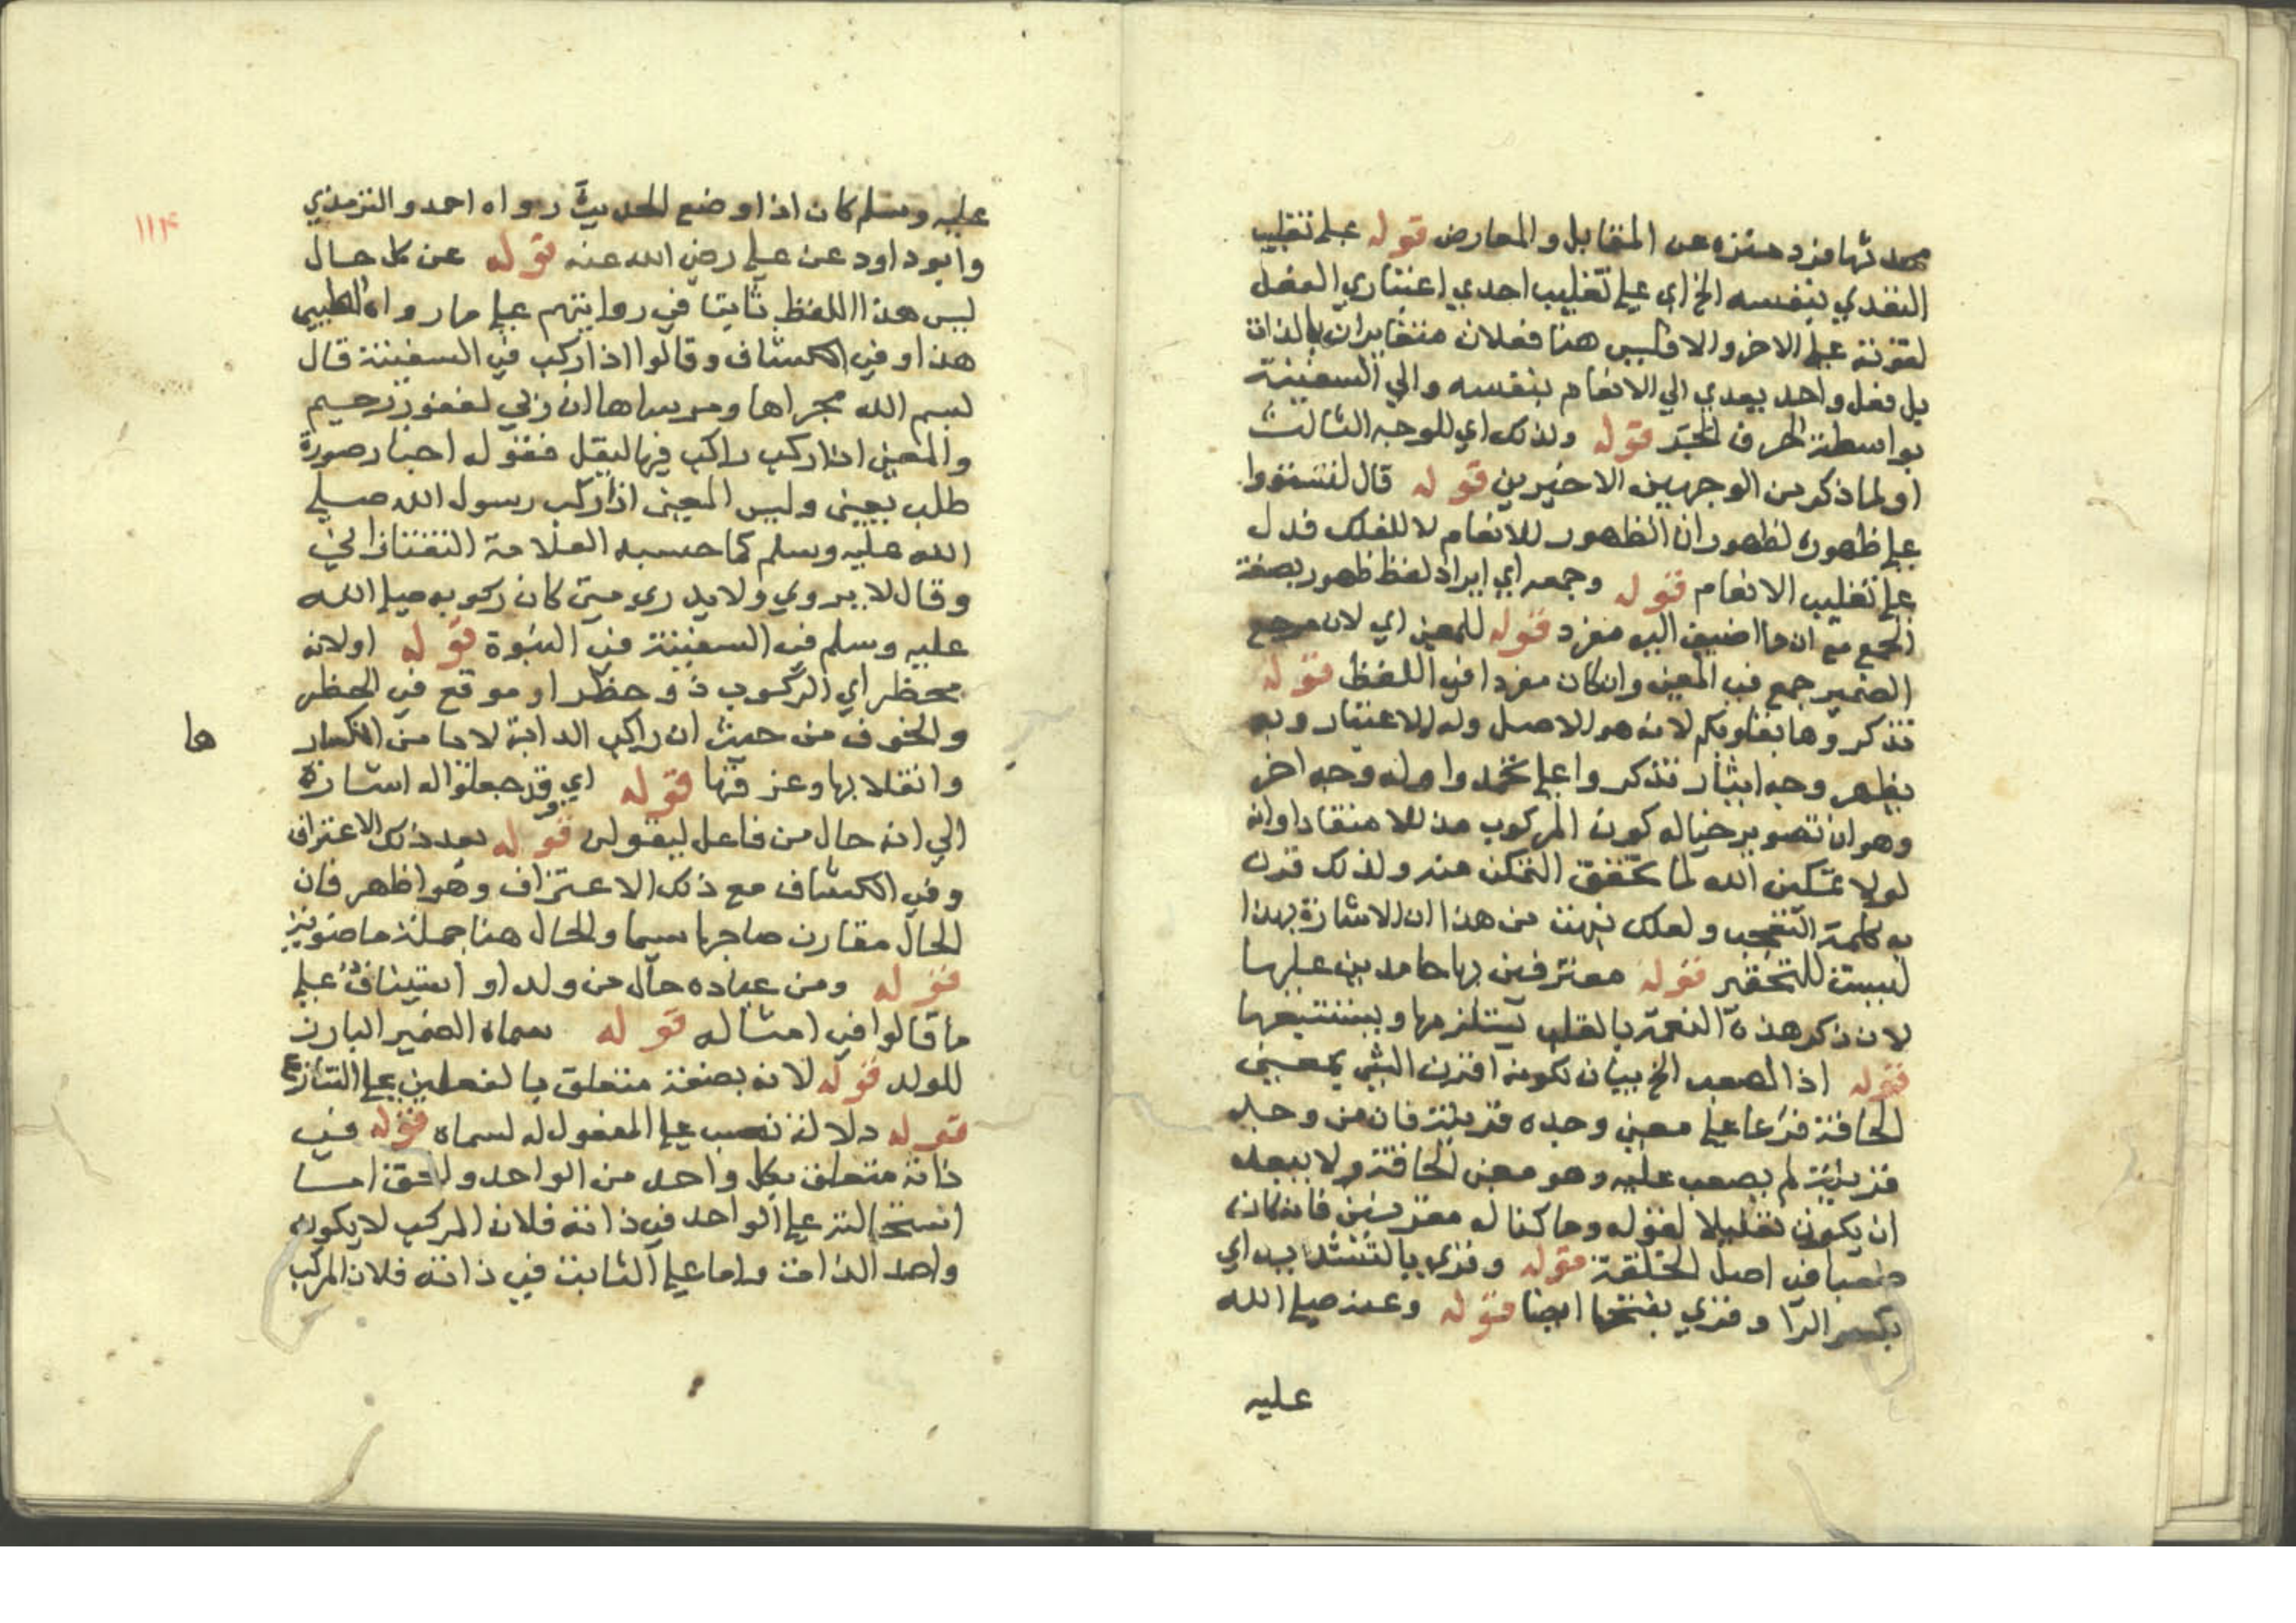 محدثها فرد منزه عن المقابل والمعارض قوله على تغليب
التعدي بنفسه الخ اي على تغليب احدي اعتباري الفعل
لقوته على الاخر والا فليس هنا فعلان متغايران بالذات
بل فعل واحد يعدي الي الانعام بنفسه والي السفينة
بواسطة الحرف قوله ولذلك اي للوجه الثالث
او لما ذكر من الوجهين الاخيرين قوله قال لتستووا
على ظهوره لظهور ان الظهور للانعام لا للفلك فدل
على تغليب الانعام قوله وجمعه اي ايراد لفظ ظهور بصيغة
الجمع مع ان ما اضيف اليه مفرد قوله للمعنى اي لان مرجع
الضمير جمع في المعنى وان كان مفردا في اللفظ قوله
تذكروها بقلوبكم لانه هو الاصل وله الاعتبار وبه
يظهر وجه ايثار تذكروا على تحمدوا وله وجه اخر
وهو ان تصوير خياله كون المركوب مذللا منقادا وانه
لولا تمكين الله لما تحقق التمكن منه ولذلك قرن
به كلمة التعجب ولعلك نبهت من هذا ان الاشارة بهذا
ليست للتحقير قوله معترفين بها حامدين عليها
لان ذكر هذه النعمة بالقلب يستلزمها ويستتبعها
قوله اذ الصعب الخ بيان لكونه اقرن الشي بمعنى
اطاقه فرعا على معنى وجده قرينته فان من وجد
قرينته لم يصعب عليه وهو معنى الطاقة ولا يبعد
ان يكون تعليلا لقوله وما كنا له مقرنين فانه كان
صعبا في اصل الخلقة قوله وقرئ بالتشديد اي
بكسر الرا وقرئ بفتحها ايضا قوله وعنه صلى الله
عليه
١١٤
عليه وسلم كان اذا وضع الحديث رواه احمد والترمذي
وابو داود عن علي رضي الله عنه قوله عن كل حال
ليس هذا اللفظ ثابتا في روايتهم على ما رواه الطيبي
هذا وفي الكشاف وقالوا اذا ركب في السفينة قال
بسم الله مجراها ومرساها ان ربي لغفور رحيم
والمعنى اذا ركب راكب فيها ليقل فقوله اخبار صورة
طلب بمعنى وليس المعنى اذا ركب رسول الله صلى
الله عليه وسلم كما حسبه العلامة التفتازاني
وقال لا يروي ولا يدري متى كان ركوبه صلى الله
عليه وسلم في السفينة في النبوة قوله او لانه
مخطر اي الركوب ذو خطر او موقع في الخطر
والخوف من حيث ان راكب الدابة لا يا من انكسار
ها
وانقلابها وغرقها قوله اي وقد جعلوا له اشارة
الي انه حال من فاعل ليقولن قوله بعد ذلك الاعتراف
وفي الكشاف مع ذلك الاعتراف وهو اظهر فان
الحال مقارن صاحبها سيما والحال هنا جملة ماضوية
قوله ومن عباده حال من ولد او استيناف على
ما قالوا في امثاله قوله سماه الضمير البارز
للولد قوله لانه بضعة متعلق بالفعلين على التنازع
قوله دلالة نصب على المفعول له لسماه قوله في
ذاته متعلق بكل واحد من الواحد والحق اما
استحالته على الواحد في ذاته فلان المركب لا يكون
واحد الذات واما على الثابت في ذاته فلان المركب